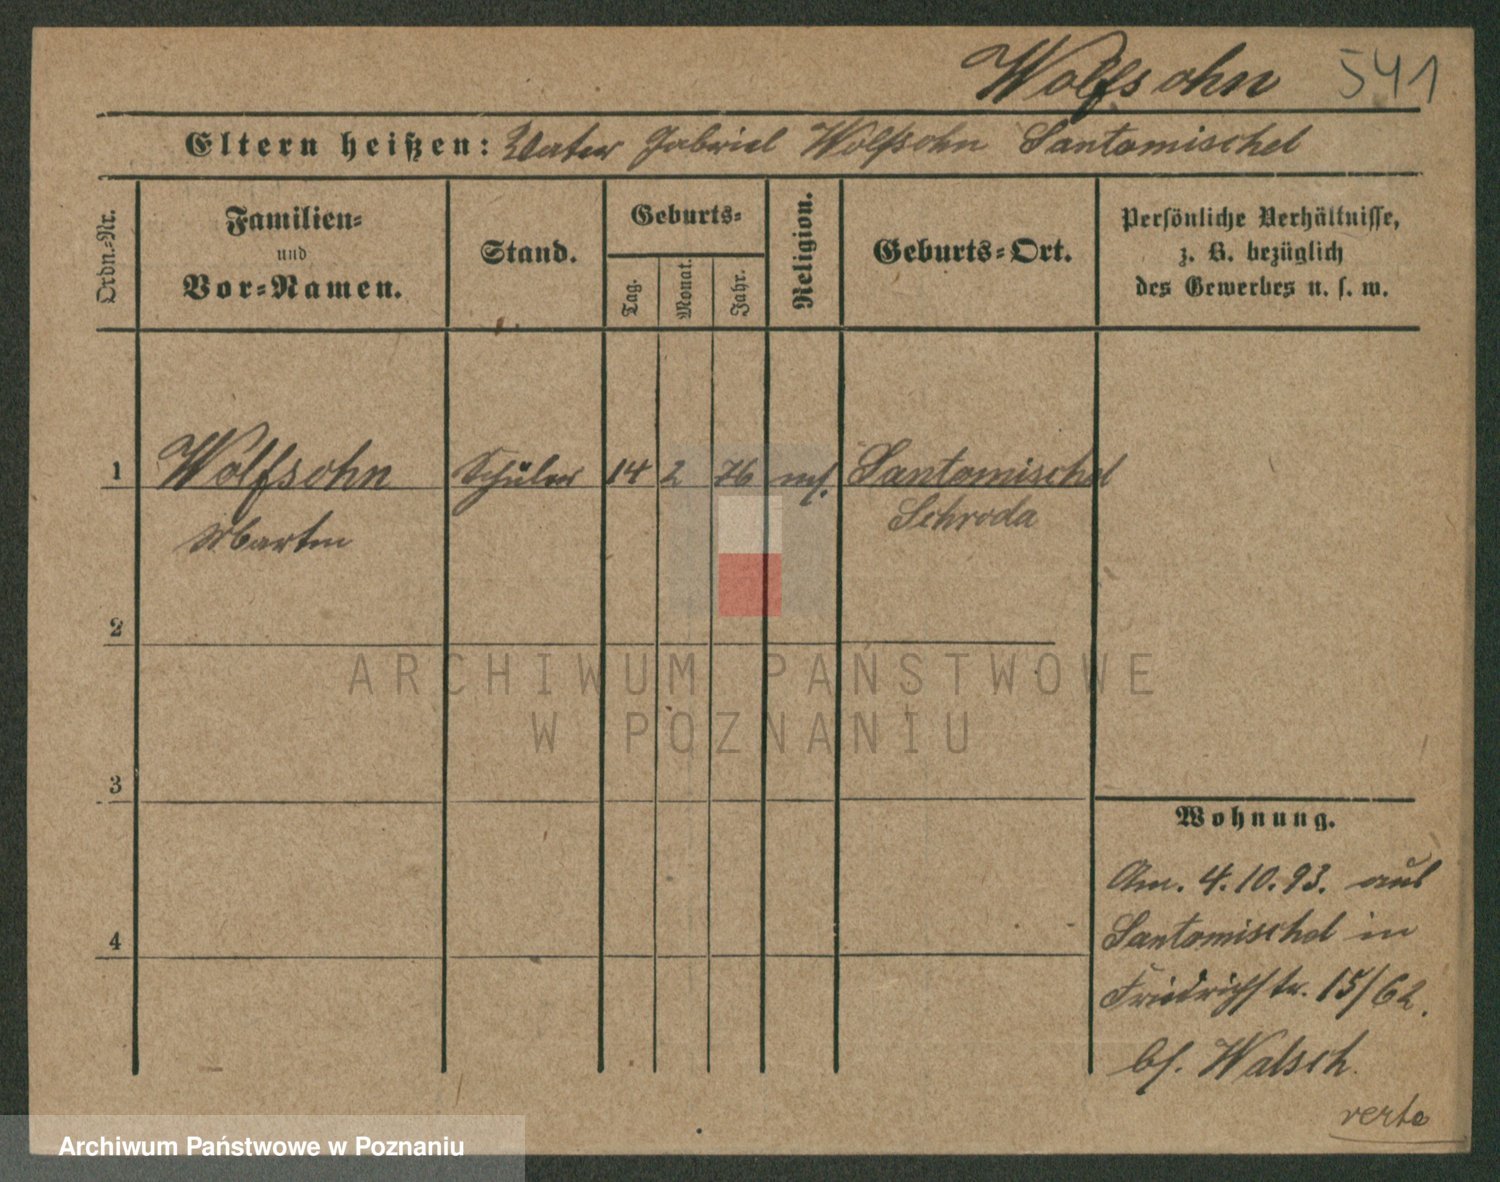 Wolfsohn 541
Eltern heißen: Vater Gabriel Wolfsohn Santomischel
Ordn.-Nr.
Familien-
und
Vor-Namen.
Stand.
Geburts-
Tag.
Monat.
Jahr.
Religion.
Geburts-Ort.
Persönliche Verhältnisse,
z. B. bezüglich
des Gewerbes u. s. w.
1 Wolfsohn Schüler 14 2 76 mos. Santomischel
Martin Schroda
2
3
4
Wohnung.
Am. 4.10.93. aus
Santomischel in
Friedrichstr. 15/62.
bs. Walsch.
verte
ARCHIWUM PAŃSTWOWE
W POZNANIU
Archiwum Państwowe w Poznaniu